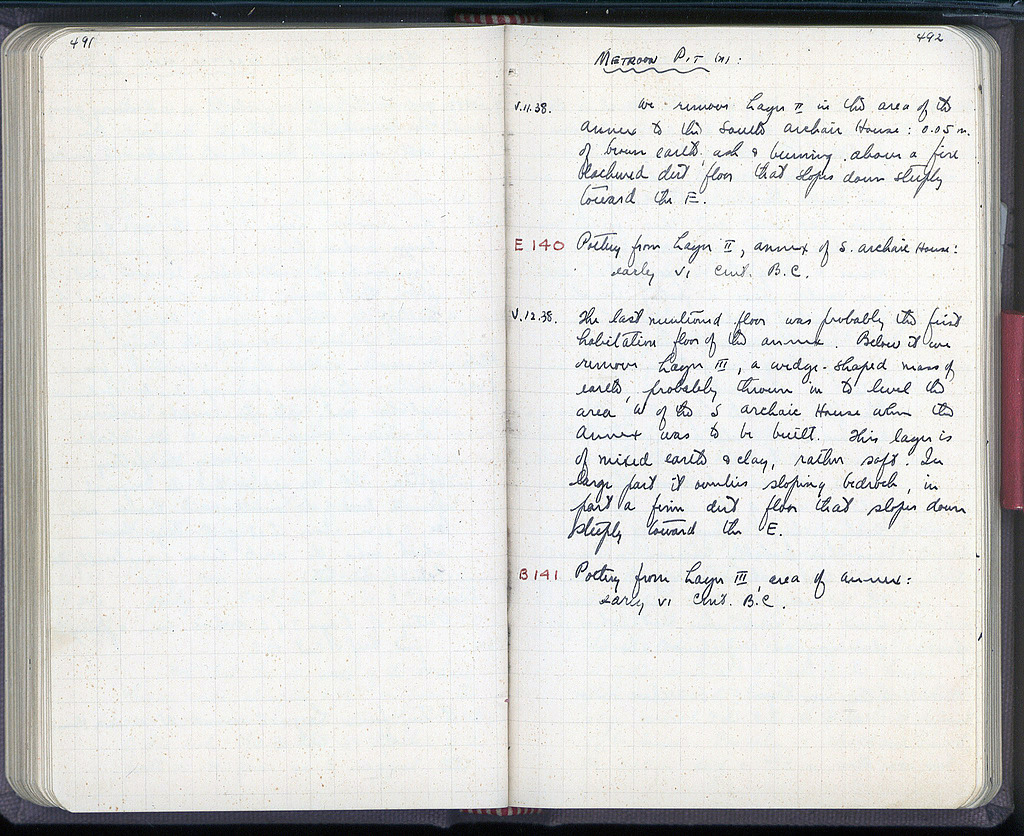 491
492
METROON PIT (N):
V.11.38. We remove Layer II in the area of the
annex to the South archaic House: 0.05 m.
of brown earth, ash & burning above a fire
blackened dirt floor that slopes down steeply
toward the E.
E 140 Pottery from Layer II, annex of S. archaic House:
early VI cent. B.C.
V.12.38. The last mentioned floor was probably the first
habitation floor of the annex. Below it we
remove Layer III, a wedge-shaped mass of
earth, probably thrown in to level the
area W of the S archaic House when the
annex was to be built. This layer is
of mixed earth & clay, rather soft. In
large part it overlies sloping bedrock, in
part a firm dirt floor that slopes down
steeply toward the E.
B 141 Pottery from Layer III, area of annex:
early VI cent. B.C.